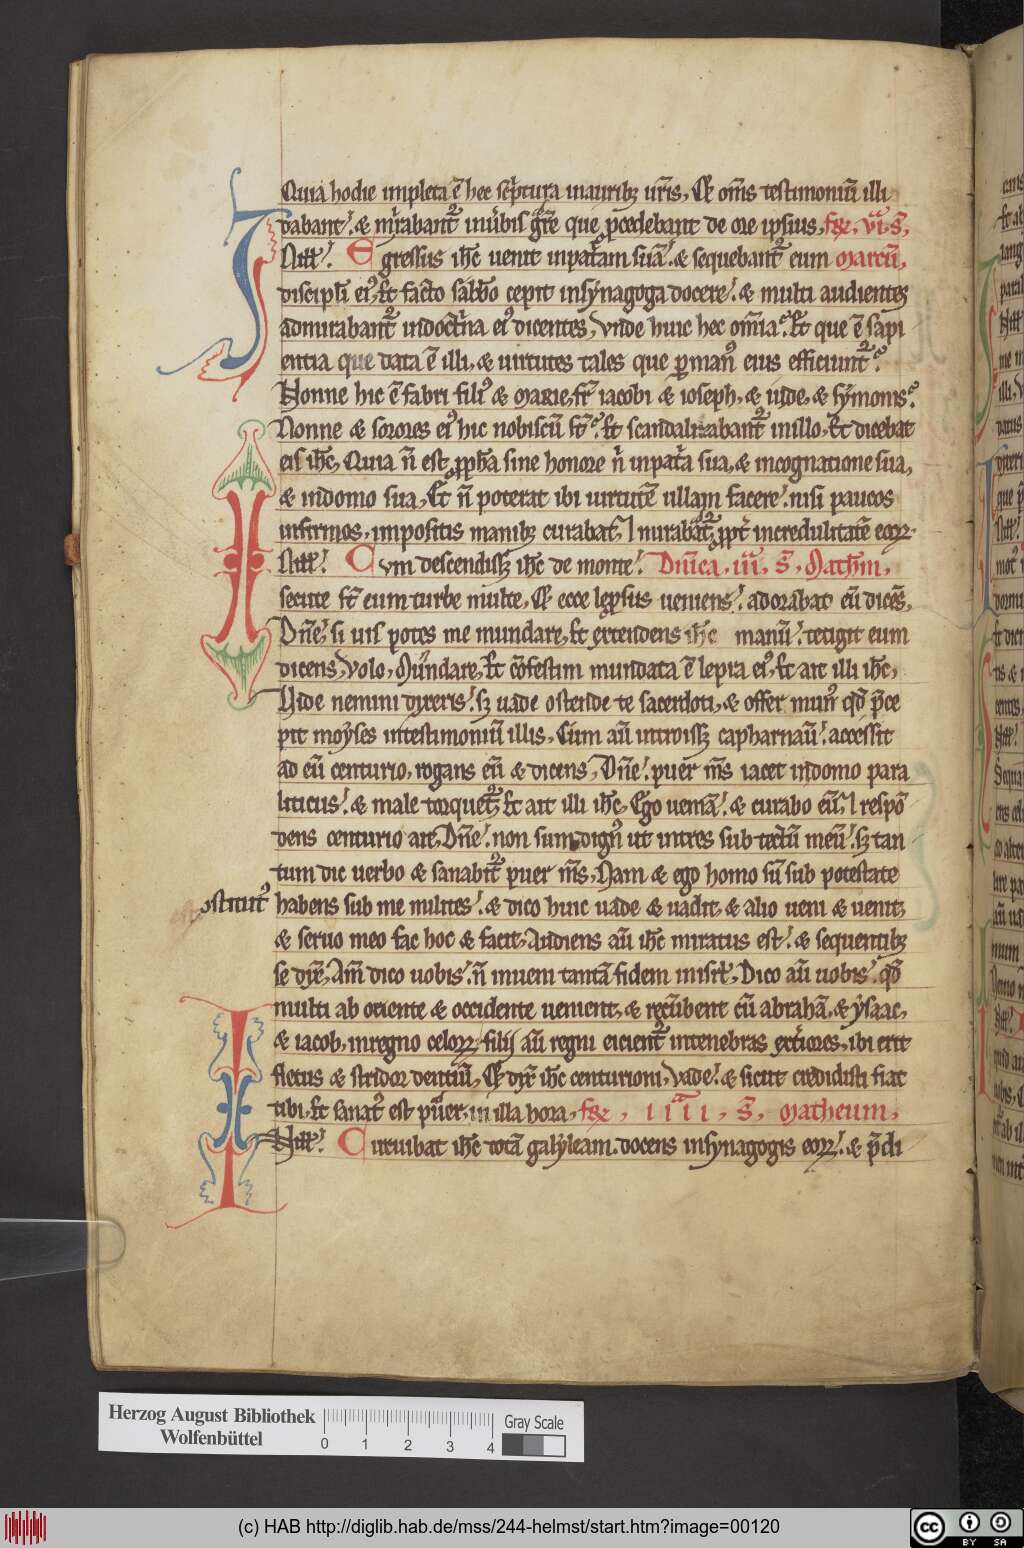 Quia hodie impleta ē hec sc̄ptura inaurib; ur̄is, Et om̄s testimoniū illi
dabant. & mirabantʳ inu̾bis gr̄e que p̄cedebant de ore ipsius, fer̄. vi. s̄,
In ill'. Egressus ih̄c uenit inpat'am suā. & sequebantʳ eum marcū,
discipl'i eiꝰ, Et facto sabb̄o cepit insynagoga docere. & multi audientes
admirabantʳ indoct'na eiꝰ dicentes, Vnde huic hec om̄ia. Et que ē sapi
entia que data ē illi, & uirtutes tales que p̱ manꝰ eius efficiuntʳ.
Nonne hic ē fabri filiꝰ & marie, fr̄ iacobi & ioseph, & iude, & symonis.
Nonne & sorores eiꝰ hic nobiscū st̄. Et scandalizabantʳ inillo, Et dicebat
eis ih̄c, Quia n̄ est ꝓph̄a sine honore n̄ inpat'a sua, & incognatione sua,
& indomo sua, Et n̄ poterat ibi uirtutē ullam facere. nisi paucos
infirmos, impositis manib; curabat, & mirabatʳ ꝓpt̄ incredulitatē eoꝝ.
In ill'. Cvm descendiss; ih̄c de monte. Dn̄ica. iii. s̄. Mathm̄,
secute st̄ eum turbe multe, Et ecce leprosus ueniens. adorabat eū dicēs,
Dn̄e, si uis potes me mundare, Et extendens ih̄c manū. tetigit eum
dicens, Volo, Mundare, Et cōfestim mundata ē lepra eiꝰ, Et ait illi ih̄c,
Vide nemini dixeris. s; uade ostende te sacerdoti, & offer munꝰ qd̄ p̄ce
pit moyses intestimoniū illis, Cum aū introiss; capharnaū. accessit
ad eū centurio, rogans eū & dicens, Dn̄e. puer m̄s iacet indomo para
liticus. & male torquetʳ, Et ait illi ih̄c, Ego ueniā. & curabo eū. & respō
dens centurio ait, Dn̄e. non sum dignꝰ ut intres sub tectū meū. s; tan
tum dic uerbo & sanabitʳ puer m̄s, Nam & ego homo sū sub potestate
ostitutꝰ habens sub me milites. & dico huic uade & uadit, & alio ueni & uenit,
& seruo meo fac hoc & facit, Audiens aū ih̄c miratus est. & sequentib;
se dix̄, Am̄ dico uobis. n̄ inueni tantā fidem inisrl', Dico aū uobis. qd̄
multi ab oriente & occidente uenient, & recūbent cū abrahā, & ysaac,
& iacob, inregno celoꝝ, filij aū regni eicientʳ intenebras ext̄iores, ibi erit
fletus & stridor dentiū, Et dix̄ ih̄c centurioni, Vade. & sicut credidisti fiat
tibi, Et sanatꝰ est puer, in illa hora, fer̄, iiii, s̄, matheum,
In ill'. Circuibat ih̄c totā galyleam. docens insynagogis eoꝝ. & p̄di
Herzog August Bibliothek
Wolfenbüttel
0 1 2 3 4
Gray Scale
(c) HAB http://diglib.hab.de/mss/244-helmst/start.htm?image=00120
cc BY SA